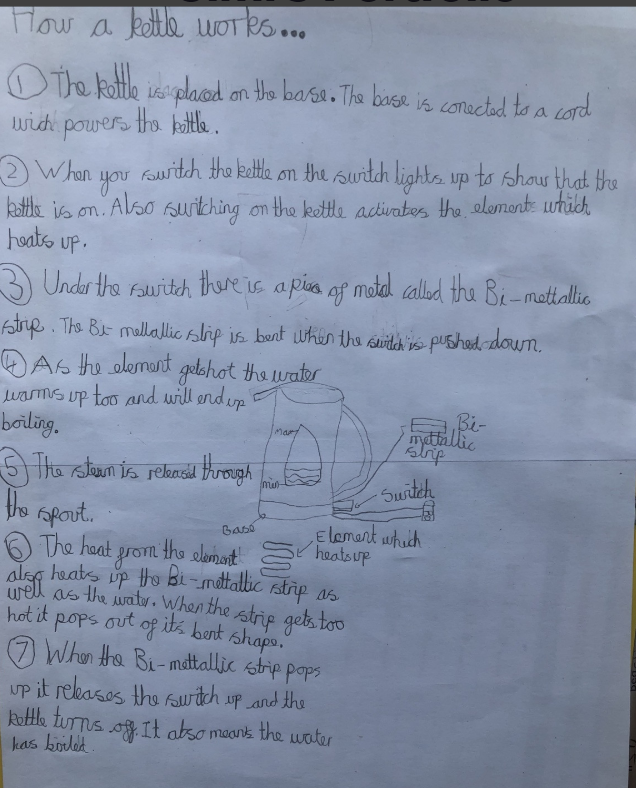 How a kettle works...
① The kettle is placed on the base. The base is conected to a cord
wich powers the kettle.
② When you switch the kettle on the switch lights up to show that the
kettle is on. Also switching on the kettle activates the element which
heats up.
③ Under the switch there is a piece of metal called the Bi-mettallic
strip. The Bi-mellallic strip is bent when the switch is pushed down.
④ As the element gets hot the water
warms up too and will end up
boiling.
max
Bi-
mettallic
strip
⑤ The steam is releasd through
min
Switch
the spout.
Base
⑥ The heat from the element
Element which
heats up
also heats up the Bi-mettallic strip as
well as the water. When the strip gets too
hot it pops out of its bent shape.
⑦ When the Bi-mettallic strip pops
up it releases the switch up and the
kettle turns off. It also means the water
has boiled.